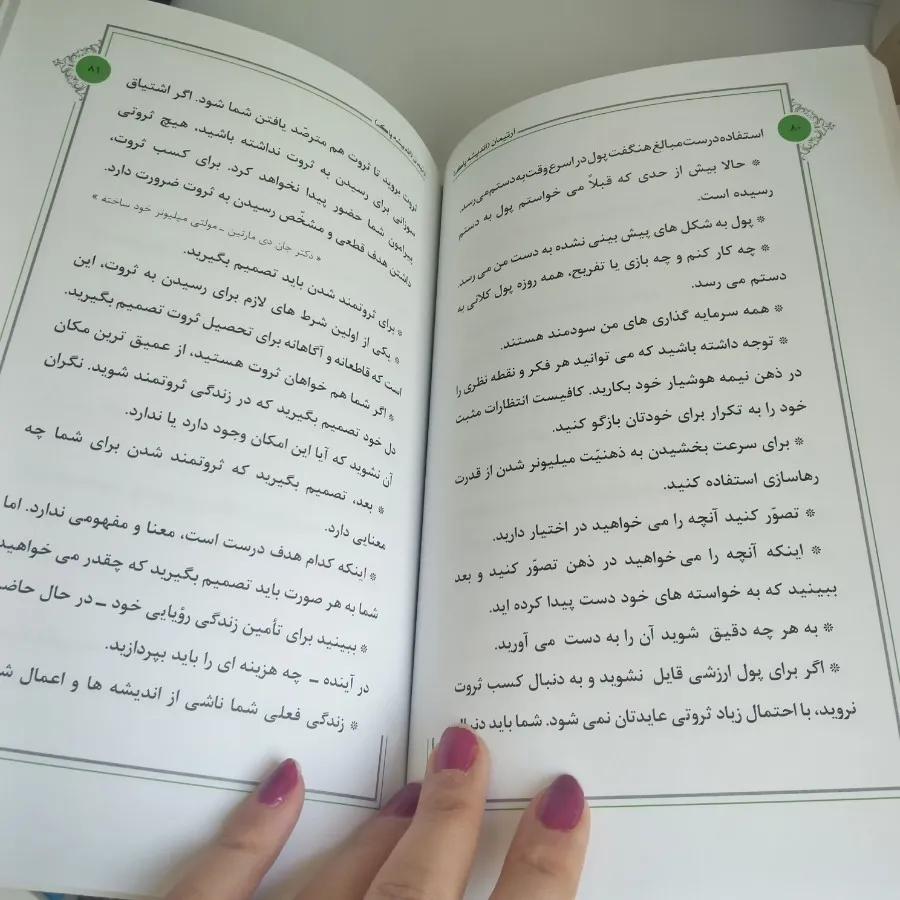 ۸۰
آرتیمان (اندیشه پاک)
استفاده درست مبالغ هنگفت پول در اسرع وقت به دستم می رسد.
* حالا بیش از حدی که قبلاً می خواستم پول به دستم
رسیده است.
* پول به شکل های پیش بینی نشده به دست من می رسد.
* چه کار کنم و چه بازی یا تفریح، همه روزه پول کلانی به
دستم می رسد.
* همه سرمایه گذاری های من سودمند هستند.
* توجه داشته باشید که می توانید هر فکر و نقطه نظری را
در ذهن نیمه هوشیار خود بکارید. کافیست انتظارات مثبت
خود را به تکرار برای خودتان بازگو کنید.
* برای سرعت بخشیدن به ذهنیّت میلیونر شدن از قدرت
رهاسازی استفاده کنید.
* تصوّر کنید آنچه را می خواهید در اختیار دارید.
* اینکه آنچه را می خواهید در ذهن تصوّر کنید و بعد
ببینید که به خواسته های خود دست پیدا کرده اید.
* به هر چه دقیق شوید آن را به دست می آورید.
* اگر برای پول ارزشی قایل نشوید و به دنبال کسب ثروت
نروید، با احتمال زیاد ثروتی عایدتان نمی شود. شما باید دنبال
۸۱
ثروت بروید، تا ثروت هم مترصّد یافتن شما شود. اگر اشتیاق
سوزانی برای رسیدن به ثروت نداشته باشید، هیچ ثروتی
پیرامون شما حضور پیدا نخواهد کرد. برای کسب ثروت،
داشتن هدف قطعی و مشخّص رسیدن به ثروت ضرورت دارد.
« دکتر جان دی مارتین ـ مولتی میلیونر خود ساخته »
* برای ثروتمند شدن باید تصمیم بگیرید.
* یکی از اولین شرط های لازم برای رسیدن به ثروت، این
است که قاطعانه و آگاهانه برای تحصیل ثروت تصمیم بگیرید.
* اگر شما هم خواهان ثروت هستید، از عمیق ترین مکان
دل خود تصمیم بگیرید که در زندگی ثروتمند شوید. نگران
آن نشوید که آیا این امکان وجود دارد یا ندارد.
* بعد، تصمیم بگیرید که ثروتمند شدن برای شما چه
معنایی دارد.
* اینکه کدام هدف درست است، معنا و مفهومی ندارد. اما
شما به هر صورت باید تصمیم بگیرید که چقدر می خواهید
* ببینید برای تأمین زندگی رؤیایی خود ـ در حال حاضر
در آینده ـ چه هزینه ای را باید بپردازید.
* زندگی فعلی شما ناشی از اندیشه ها و اعمال